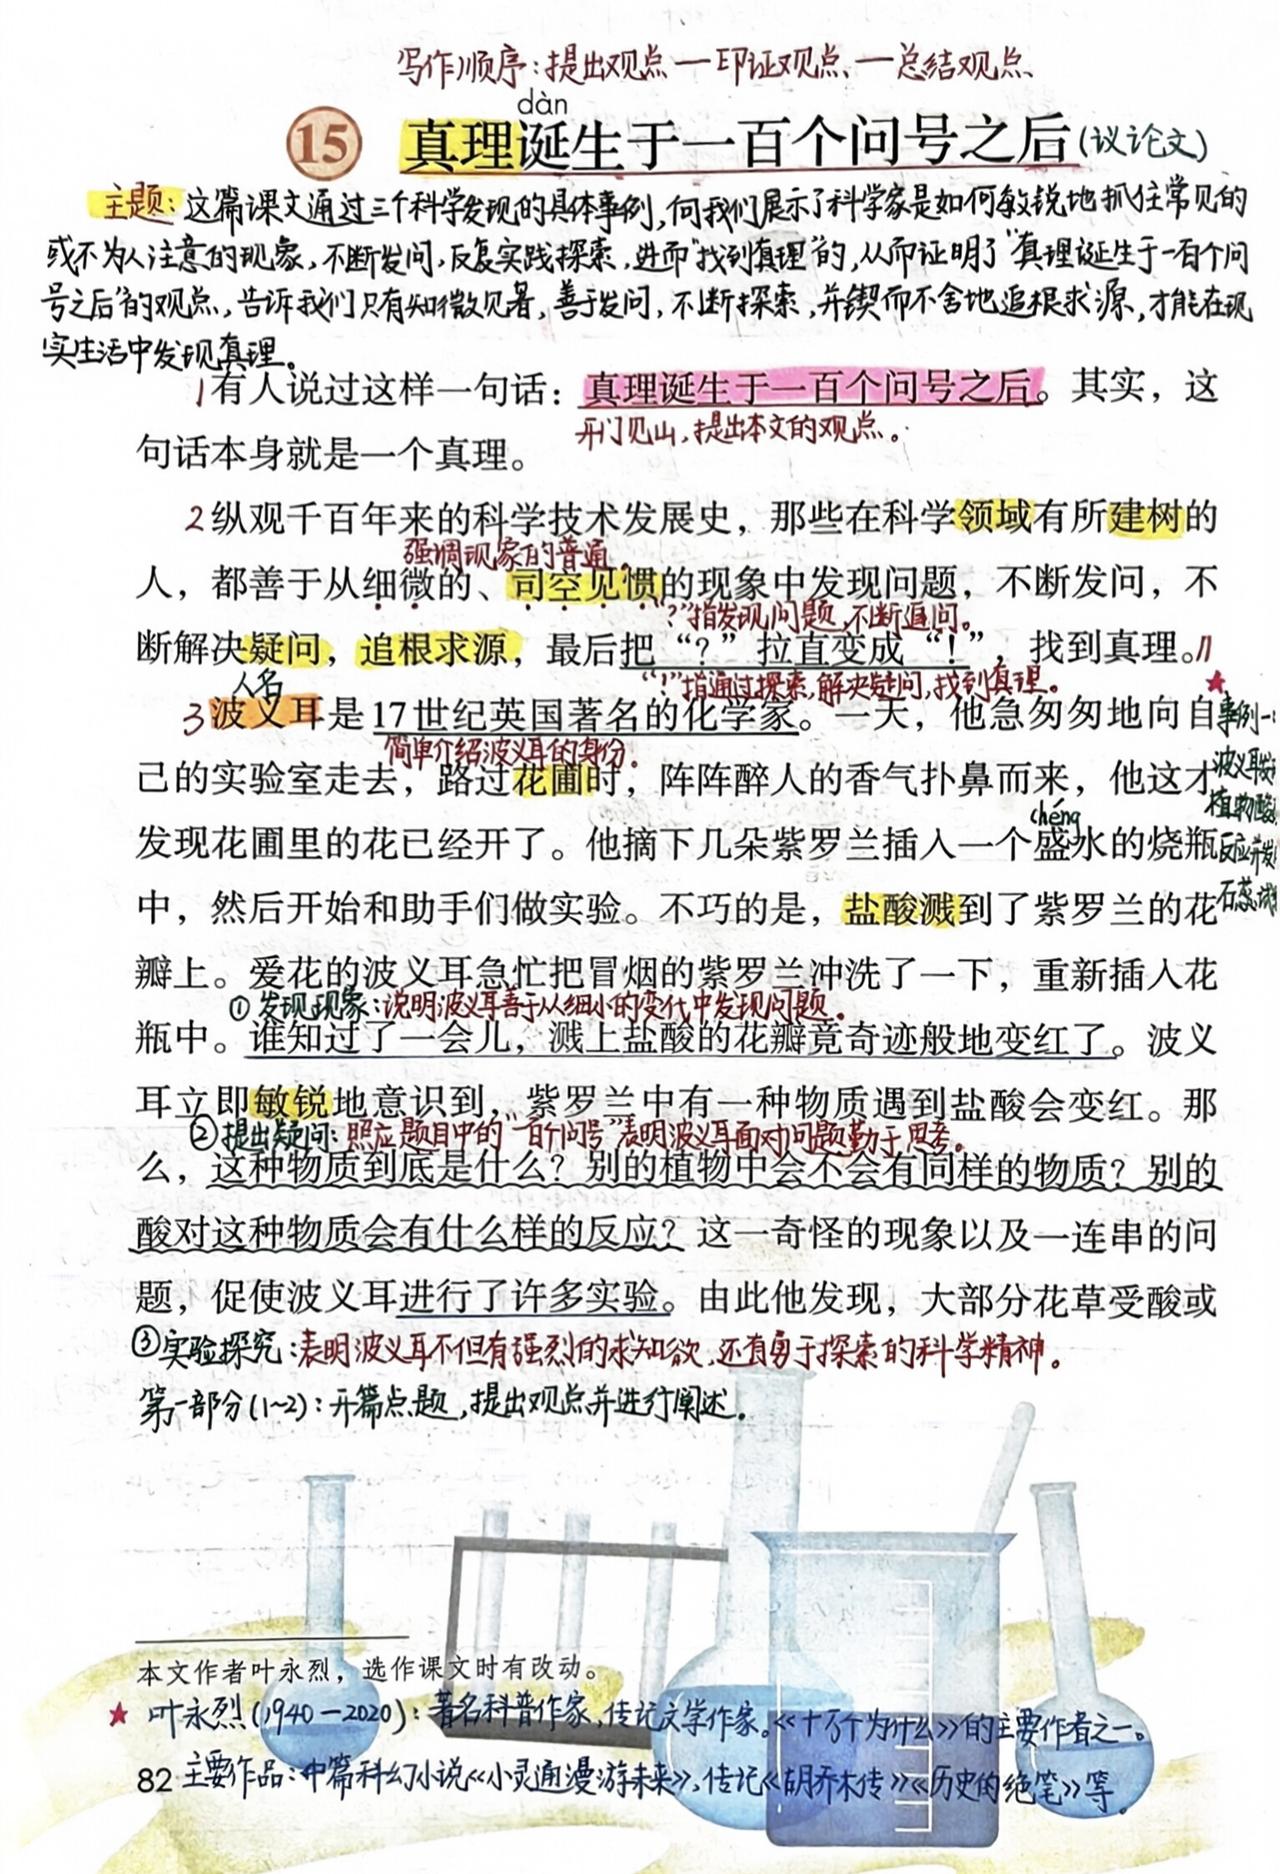 写作顺序：提出观点—印证观点—总结观点
dàn
15 真理诞生于一百个问号之后(议论文)
主题：这篇课文通过三个科学发现的具体事例，向我们展示了科学家是如何敏锐地抓住常见的
或不为人注意的现象，不断发问，反复实践探索，进而“找到真理”的，从而证明了“真理诞生于一百个问
号之后”的观点，告诉我们只有知微见著，善于发问，不断探索，并锲而不舍地追根求源，才能在现
实生活中发现真理。
1有人说过这样一句话：真理诞生于一百个问号之后。其实，这
开门见山，提出本文的观点。
句话本身就是一个真理。
2纵观千百年来的科学技术发展史，那些在科学领域有所建树的
强调现象的普遍。
人，都善于从细微的、司空见惯的现象中发现问题，不断发问，不
“？”指发现问题，不断追问。
断解决疑问，追根求源，最后把“？”拉直变成“！”，找到真理。//
人名
“！”指通过探索，解决疑问，找到真理。
3波义耳是17世纪英国著名的化学家。一天，他急匆匆地向自
★事例一：
简单介绍波义耳的身份。
己的实验室走去，路过花圃时，阵阵醉人的香气扑鼻而来，他这才
波义耳发
植物酸
chéng
发现花圃里的花已经开了。他摘下几朵紫罗兰插入一个盛水的烧瓶
反应并发
中，然后开始和助手们做实验。不巧的是，盐酸溅到了紫罗兰的花
石蕊试
瓣上。爱花的波义耳急忙把冒烟的紫罗兰冲洗了一下，重新插入花
①发现现象：说明波义耳善于从细小的变化中发现问题。
瓶中。谁知过了一会儿，溅上盐酸的花瓣竟奇迹般地变红了。波义
耳立即敏锐地意识到，紫罗兰中有一种物质遇到盐酸会变红。那
②提出疑问：照应题目中的“一百个问号”表明波义耳面对问题勤于思考。
么，这种物质到底是什么？别的植物中会不会有同样的物质？别的
酸对这种物质会有什么样的反应？这一奇怪的现象以及一连串的问
题，促使波义耳进行了许多实验。由此他发现，大部分花草受酸或
③实验探究：表明波义耳不但有强烈的求知欲，还有勇于探索的科学精神。
第一部分(1~2)：开篇点题，提出观点并进行阐述。
本文作者叶永烈，选作课文时有改动。
★叶永烈(1940—2020)：著名科普作家，传记文学作家。《十万个为什么》的主要作者之一。
82 主要作品：中篇科幻小说《小灵通漫游未来》，传记《胡乔木传》《历史的绝笔》等。